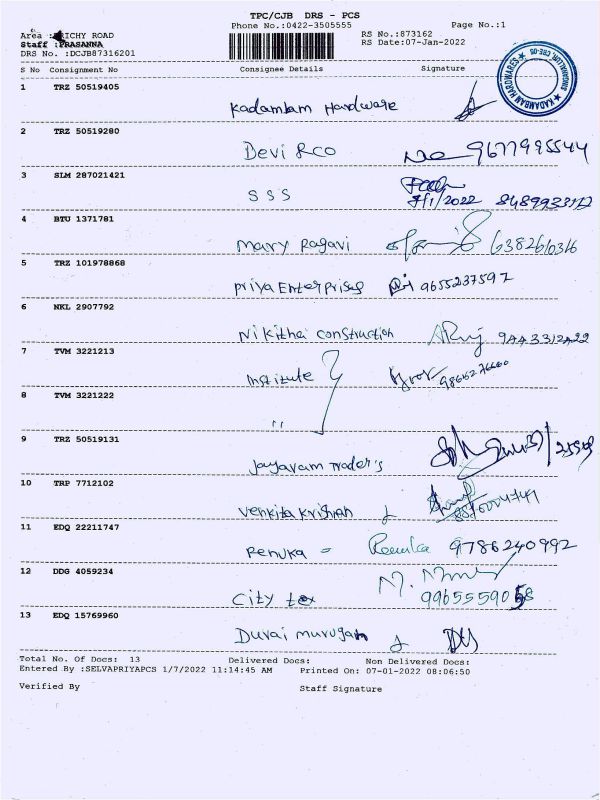 TPC/CJB DRS - PCS
Phone No.:0422-3505555 Page No.:1
Area : RICHY ROAD RS No.:873162
Staff :PRASANNA RS Date:07-Jan-2022
DRS No. :DCJB87316201
S No Consignment No Consignee Details Signature
KADAMBAM HARDWARES
1 TRZ 50519405
Kadambam Hardware
2 TRZ 50519280
Devi & co 9677995544
3 SLM 287021421
SSS 7/1/2022
4 BTU 1371781
Mary Ragavi 6382610316
5 TRZ 101978868
Priya Enterprises 9655237597
6 NKL 2907792
Nikithai construction
7 TVM 3221213
Institute
8 TVM 3221222
"
9 TRZ 50519131
Jayaram Trader's
10 TRP 7712102
Venkita Krishnan
11 EDQ 22211747
Renuka = Renuka 9786240992
12 DDG 4059234
City tex
13 EDQ 15769960
Durai murugan
Total No. Of Docs: 13 Delivered Docs: Non Delivered Docs:
Entered By :SELVAPRIYAPCS 1/7/2022 11:14:45 AM Printed On: 07-01-2022 08:06:50
Verified By Staff Signature